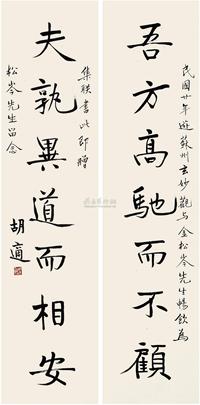 民國廿年遊蘇州玄妙觀与金松岑先生暢飲為
吾方高馳而不顧
夫孰異道而相安
集聯書此即贈
松岑先生留念
胡適